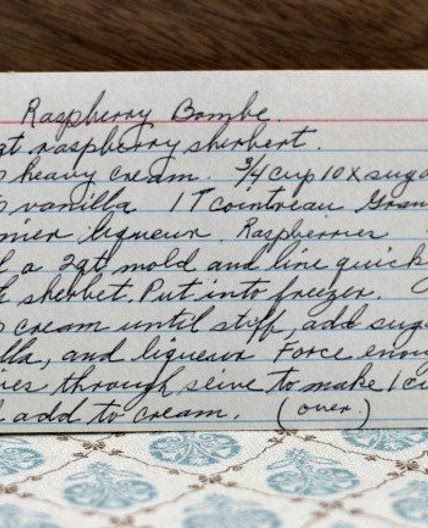 Raspberry Bombe.
qt raspberry sherbert.
heavy cream. 3/4 cup 10X suga
vanilla 1T cointreau Gran
nier liqueur. Raspberries
l a 2qt mold and line quick
h sherbet. Put into freezer.
cream until stiff, add suga
lla, and liqueur Force enou
ies through seive to make 1 cu
d add to cream. (over.)